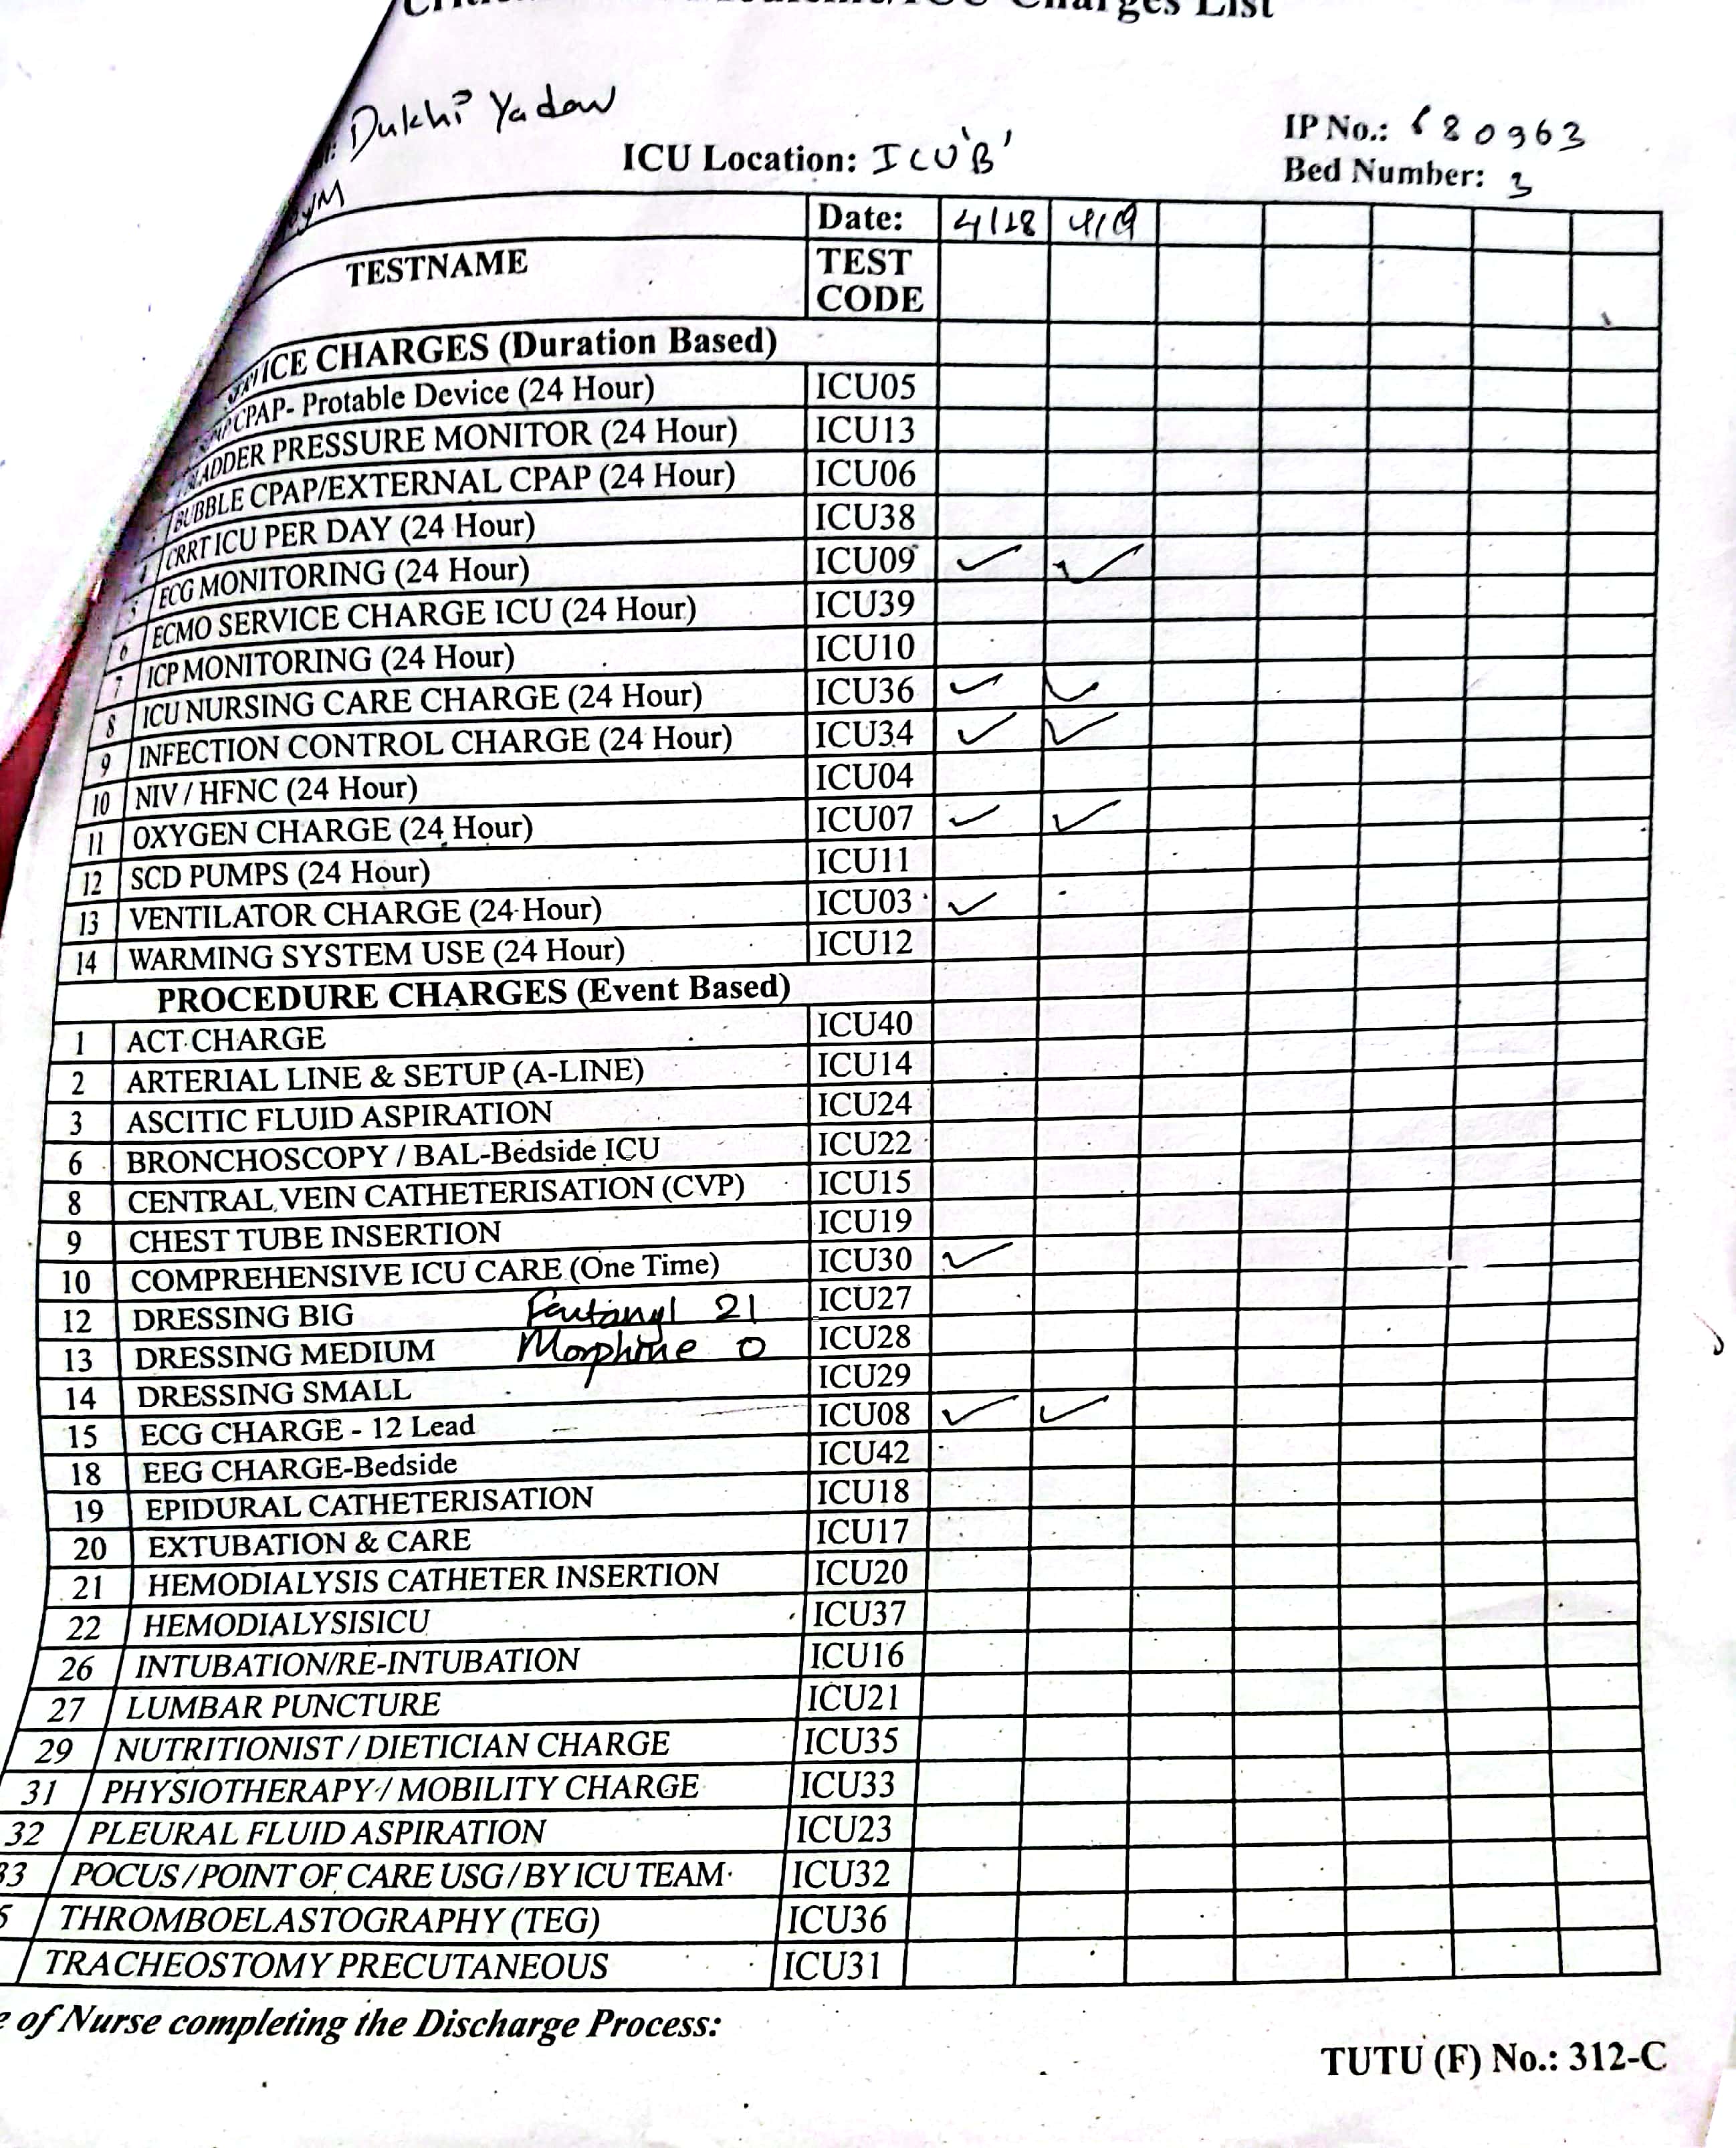 ICU Charges List
Dukhi Yadav
IP No.: 680963
ICU Location: ICU 'B'
Bed Number: 3
Date: 4/18 4/19
TESTNAME TEST CODE
CHARGES (Duration Based)
CPAP- Protable Device (24 Hour) ICU05
BLADDER PRESSURE MONITOR (24 Hour) ICU13
BUBBLE CPAP/EXTERNAL CPAP (24 Hour) ICU06
4 CRRT ICU PER DAY (24 Hour) ICU38
5 ECG MONITORING (24 Hour) ICU09 ✓ ✓
6 ECMO SERVICE CHARGE ICU (24 Hour) ICU39
7 ICP MONITORING (24 Hour) ICU10
8 ICU NURSING CARE CHARGE (24 Hour) ICU36 ✓ ✓
9 INFECTION CONTROL CHARGE (24 Hour) ICU34 ✓ ✓
10 NIV / HFNC (24 Hour) ICU04
11 OXYGEN CHARGE (24 Hour) ICU07 ✓ ✓
12 SCD PUMPS (24 Hour) ICU11
13 VENTILATOR CHARGE (24 Hour) ICU03 ✓
14 WARMING SYSTEM USE (24 Hour) ICU12
PROCEDURE CHARGES (Event Based)
1 ACT CHARGE ICU40
2 ARTERIAL LINE & SETUP (A-LINE) ICU14
3 ASCITIC FLUID ASPIRATION ICU24
6 BRONCHOSCOPY / BAL-Bedside ICU ICU22
8 CENTRAL VEIN CATHETERISATION (CVP) ICU15
9 CHEST TUBE INSERTION ICU19
10 COMPREHENSIVE ICU CARE (One Time) ICU30 ✓
12 DRESSING BIG Fentanyl 21 ICU27
13 DRESSING MEDIUM Morphine 0 ICU28
14 DRESSING SMALL ICU29
15 ECG CHARGE - 12 Lead ICU08 ✓ ✓
18 EEG CHARGE-Bedside ICU42
19 EPIDURAL CATHETERISATION ICU18
20 EXTUBATION & CARE ICU17
21 HEMODIALYSIS CATHETER INSERTION ICU20
22 HEMODIALYSISICU ICU37
26 INTUBATION/RE-INTUBATION ICU16
27 LUMBAR PUNCTURE ICU21
29 NUTRITIONIST / DIETICIAN CHARGE ICU35
31 PHYSIOTHERAPY / MOBILITY CHARGE ICU33
32 PLEURAL FLUID ASPIRATION ICU23
33 POCUS / POINT OF CARE USG / BY ICU TEAM ICU32
5 THROMBOELASTOGRAPHY (TEG) ICU36
TRACHEOSTOMY PRECUTANEOUS ICU31
of Nurse completing the Discharge Process:
TUTU (F) No.: 312-C